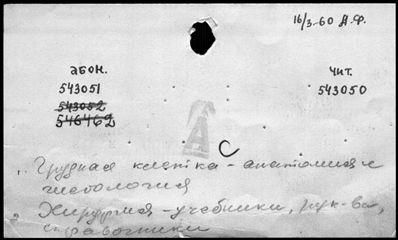 16/3-60 А.Ф.
абон. чит.
543051 543050
543052
546462
А
С
Грудная клетка - анатомия и
гистология
Хирургия - учебники, рук-ва,
справочники